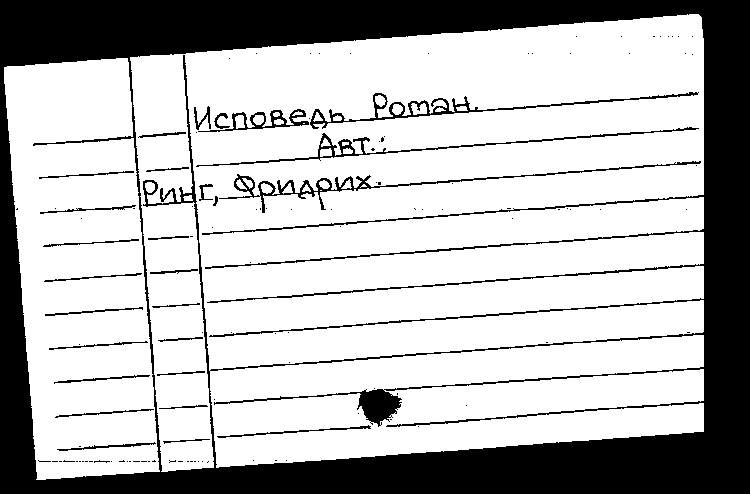 Исповедь. Роман.
Авт.:
Ринг, Фридрих.